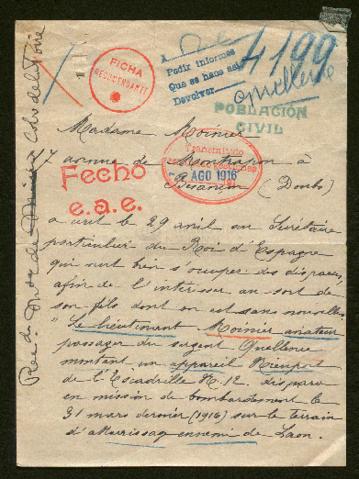 A
Pedir informes
Que se haga así
Devolver
4199
FICHA
POBLACIÓN
CIVIL
Madame Moinier
7 avenue de Montrapon à
Besançon (Doubs)
Transmitido
AGO 1916
Fecho
e.a.e.
a écrit le 29 avril au Secrétaire
particulier du Roi d'Espagne
qui veut bien s'occuper des disparus,
afin de l'intéresser au sort de
son fils dont on est sans nouvelles.
"Le lieutenant Moinier aviateur
passager du sergent Quellenec
montant un appareil Nieuport
de l'Escadrille N. 12. disparu
en mission de bombardement le
31 mars dernier (1916) sur le terrain
d'atterrissage ennemi de Laon.